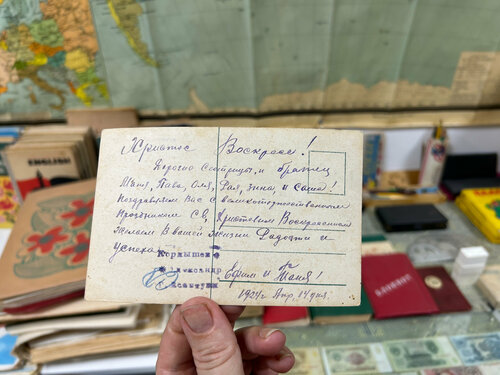 Христос Воскрес!
Дорогие Сестрицы, и братец
Маня, Пава, Оля, Рая, Зина, и Саша!
Поздравляем Вас с великоторжественным
праздником Св. Христовым Воскресением
желаем в вашей жизни Радости и
успеха
Александр
Ефим и Таня!
1924 г. Апр. 14 дня.
ENGLISH
БЛОКНОТ